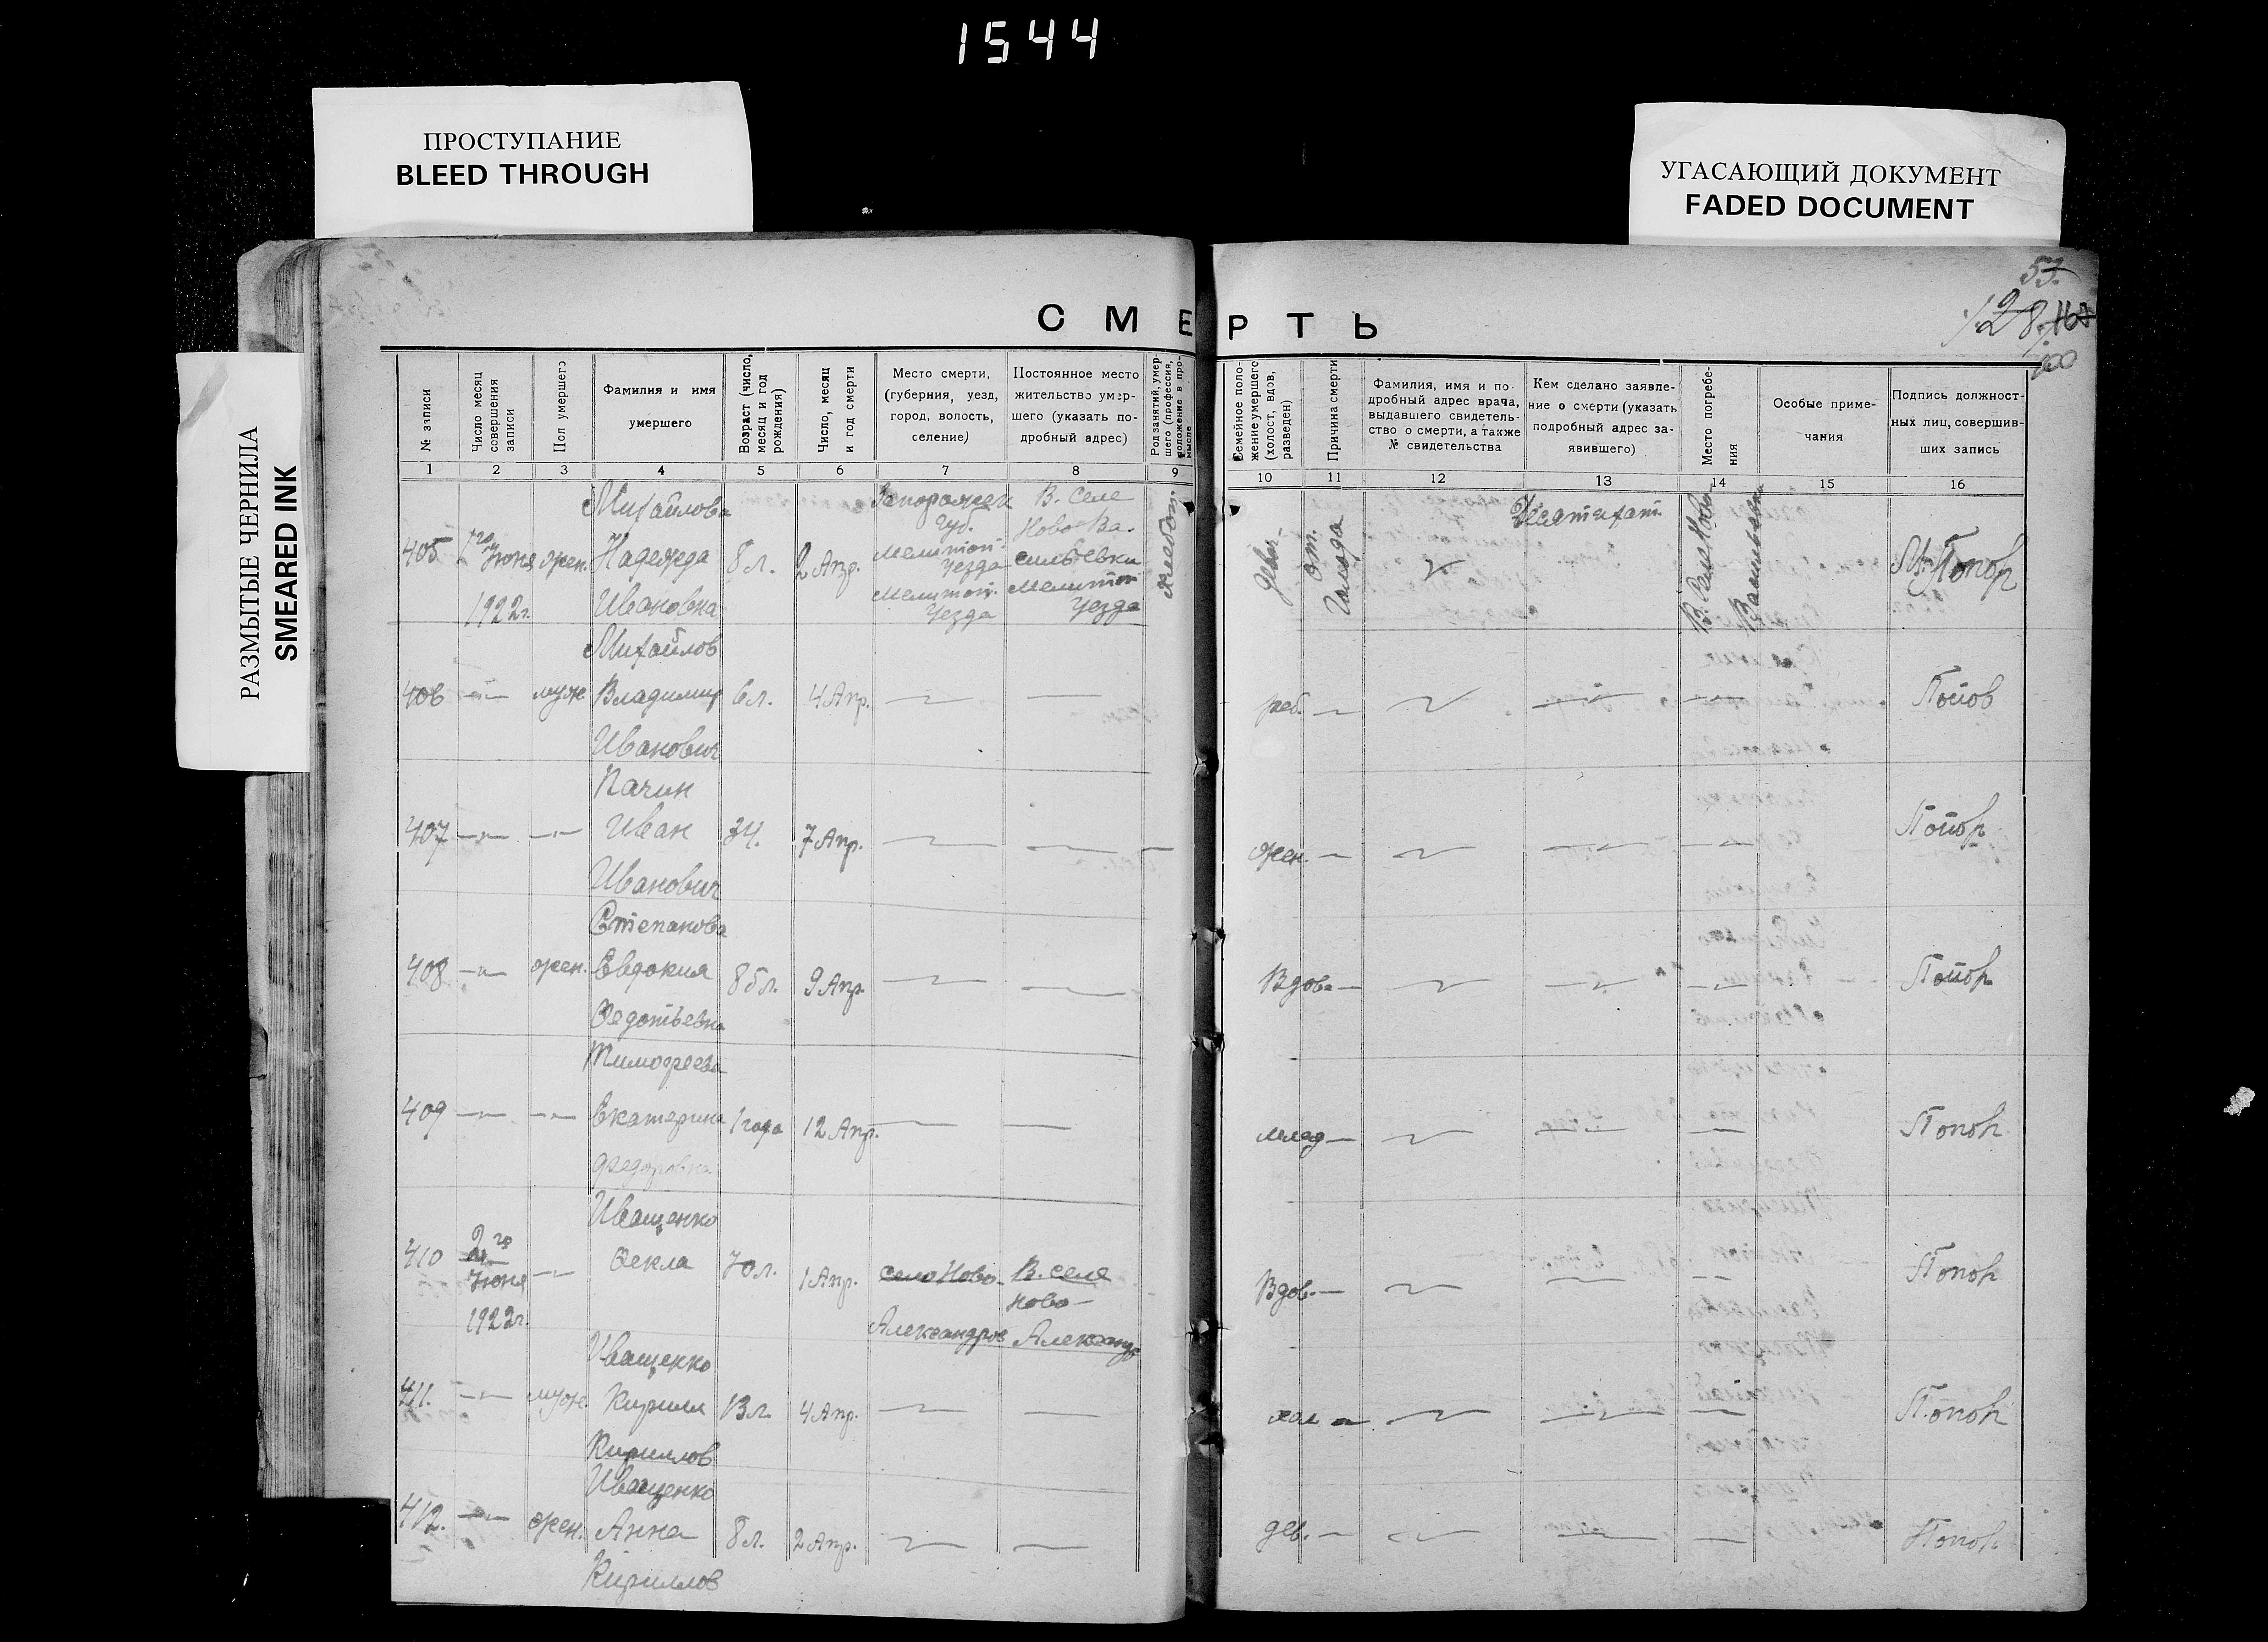 1544
ПРОСТУПАНИЕ
BLEED THROUGH
УГАСАЮЩИЙ ДОКУМЕНТ
FADED DOCUMENT
РАЗМЫТЫЕ ЧЕРНИЛА
SMEARED INK
53.
128
100
СМЕРТЬ
№ записи
Число месяц
совершения
записи
Пол умершего
Фамилия и имя
умершего
Возраст (число,
месяц и год
рождения)
Число, месяц
и год смерти
Место смерти,
(губерния, уезд,
город, волость,
селение)
Постоянное место
жительство умер-
шего (указать по-
дробный адрес)
Род занятий, умер-
шего (профессия,
положение в про-
мысле
Семейное поло-
жение умершего
(холост, вдов,
разведен)
Причина смерти
Фамилия, имя и по-
дробный адрес врача,
выдавшего свидетель-
ство о смерти, а также
№ свидетельства
Кем сделано заявле-
ние о смерти (указать
подробный адрес за-
явившего)
Место погребе-
ния
Особые приме-
чания
Подпись должност-
ных лиц, совершив-
ших запись
1 2 3 4 5 6 7 8 9 10 11 12 13 14 15 16
Михайлова
405 1го Июня жен. Надежда 8 л. 2 Апр.
1922г. Ивановна
Запорожск
Губ.
Мелитоп.
Уезда
Мелитоп.
Уезда
В. Селе
Ново Ва-
сильевки
Мелитоп
Уезда
От
Голода
В. Селе Ново
Васильевки
Попов
Михайлов
406 —„— муж Владимир 6 л. 4 Апр. — —
Иванович
реб. — — — — Попов
Пачин
407 —„— —„— Иван 34. 7 Апр. — — —
Иванович
жен. — — — — Попов
Степанова
408 —„— жен. Евдокия 85 л. 9 Апр. — —
Федотьевна
Вдова — — — — Попов
Тимофеева
409 —„— —„— Екатерина 1 года 12 Апр. — —
Федоровна
млад — — — — Попов
Иващенко
410 2го Июня 1922г. —„— Фекла 70 л. 1 Апр.
село Ново-
Александров
В. селе
Ново-
Александр
Вдов. — — — — Попов
Иващенко
411. —„— муж. Кирилл 13 л. 4 Апр. — —
Кириллов
хол — — — — Попов
Иващенко
412. —„— жен. Анна 8 л. 2 Апр. — —
Кириллов
дев. — — — — Попов